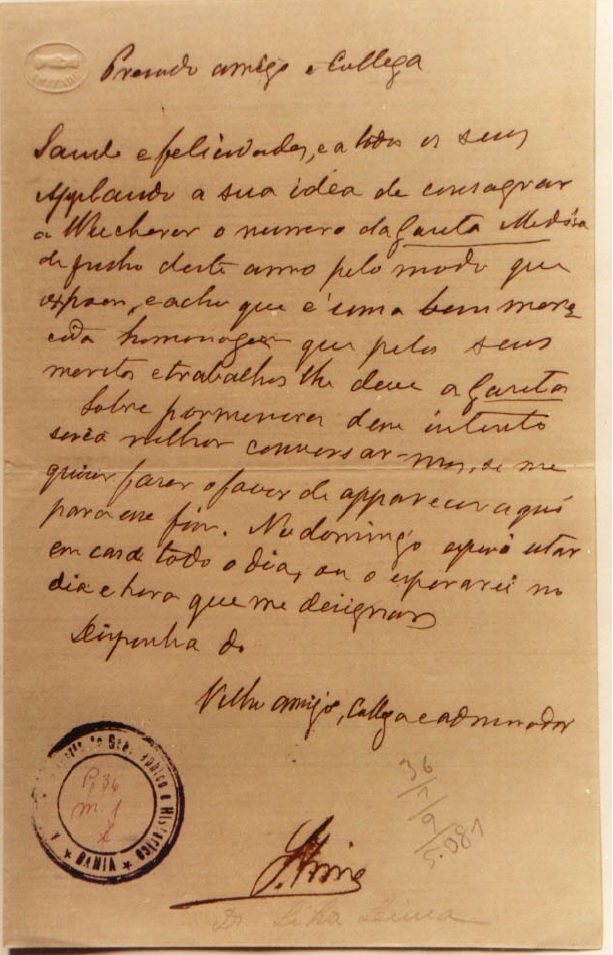 Presado amigo e Collega
Saude e felicidades, e a todos os seus
Applaudo a sua idéa de consagrar
a Wucherer o numero da Gazeta Medica
de Junho deste anno pelo modo que
expoem, e acho que é uma bem mere
cida homenagem que pelos seus
meritos e trabalhos lhe deve a Gazeta
Sobre pormenores deste intento
seria melhor conversar-mos, se me
quizer fazer o favor de apparecer aqui
para esse fim. No domingo espero estar
em casa todo o dia, ou o esperarei no
dia e hora que me designar
Disponha do
Velho amigo, Collega e admirador
S. Lima
Geographico e Historico
BAHIA
P. 36
m. 1
36
1
9
5.081
Dr. Silva Lima